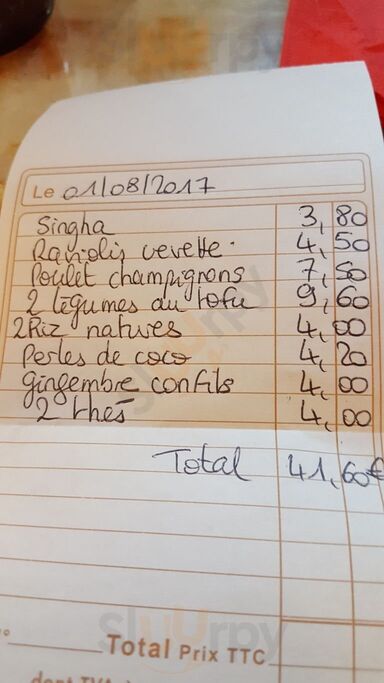 Le 01/08/2017
Singha 3,80
Raviolis vevette. 4,50
Poulet champignons 7,50
2 légumes au tofu 9,60
2 Riz natures 4,00
Perles de coco 4,20
Gingembre confits 4,00
2 thés 4,00
Total 41,60€
Total Prix TTC
Sluurpy